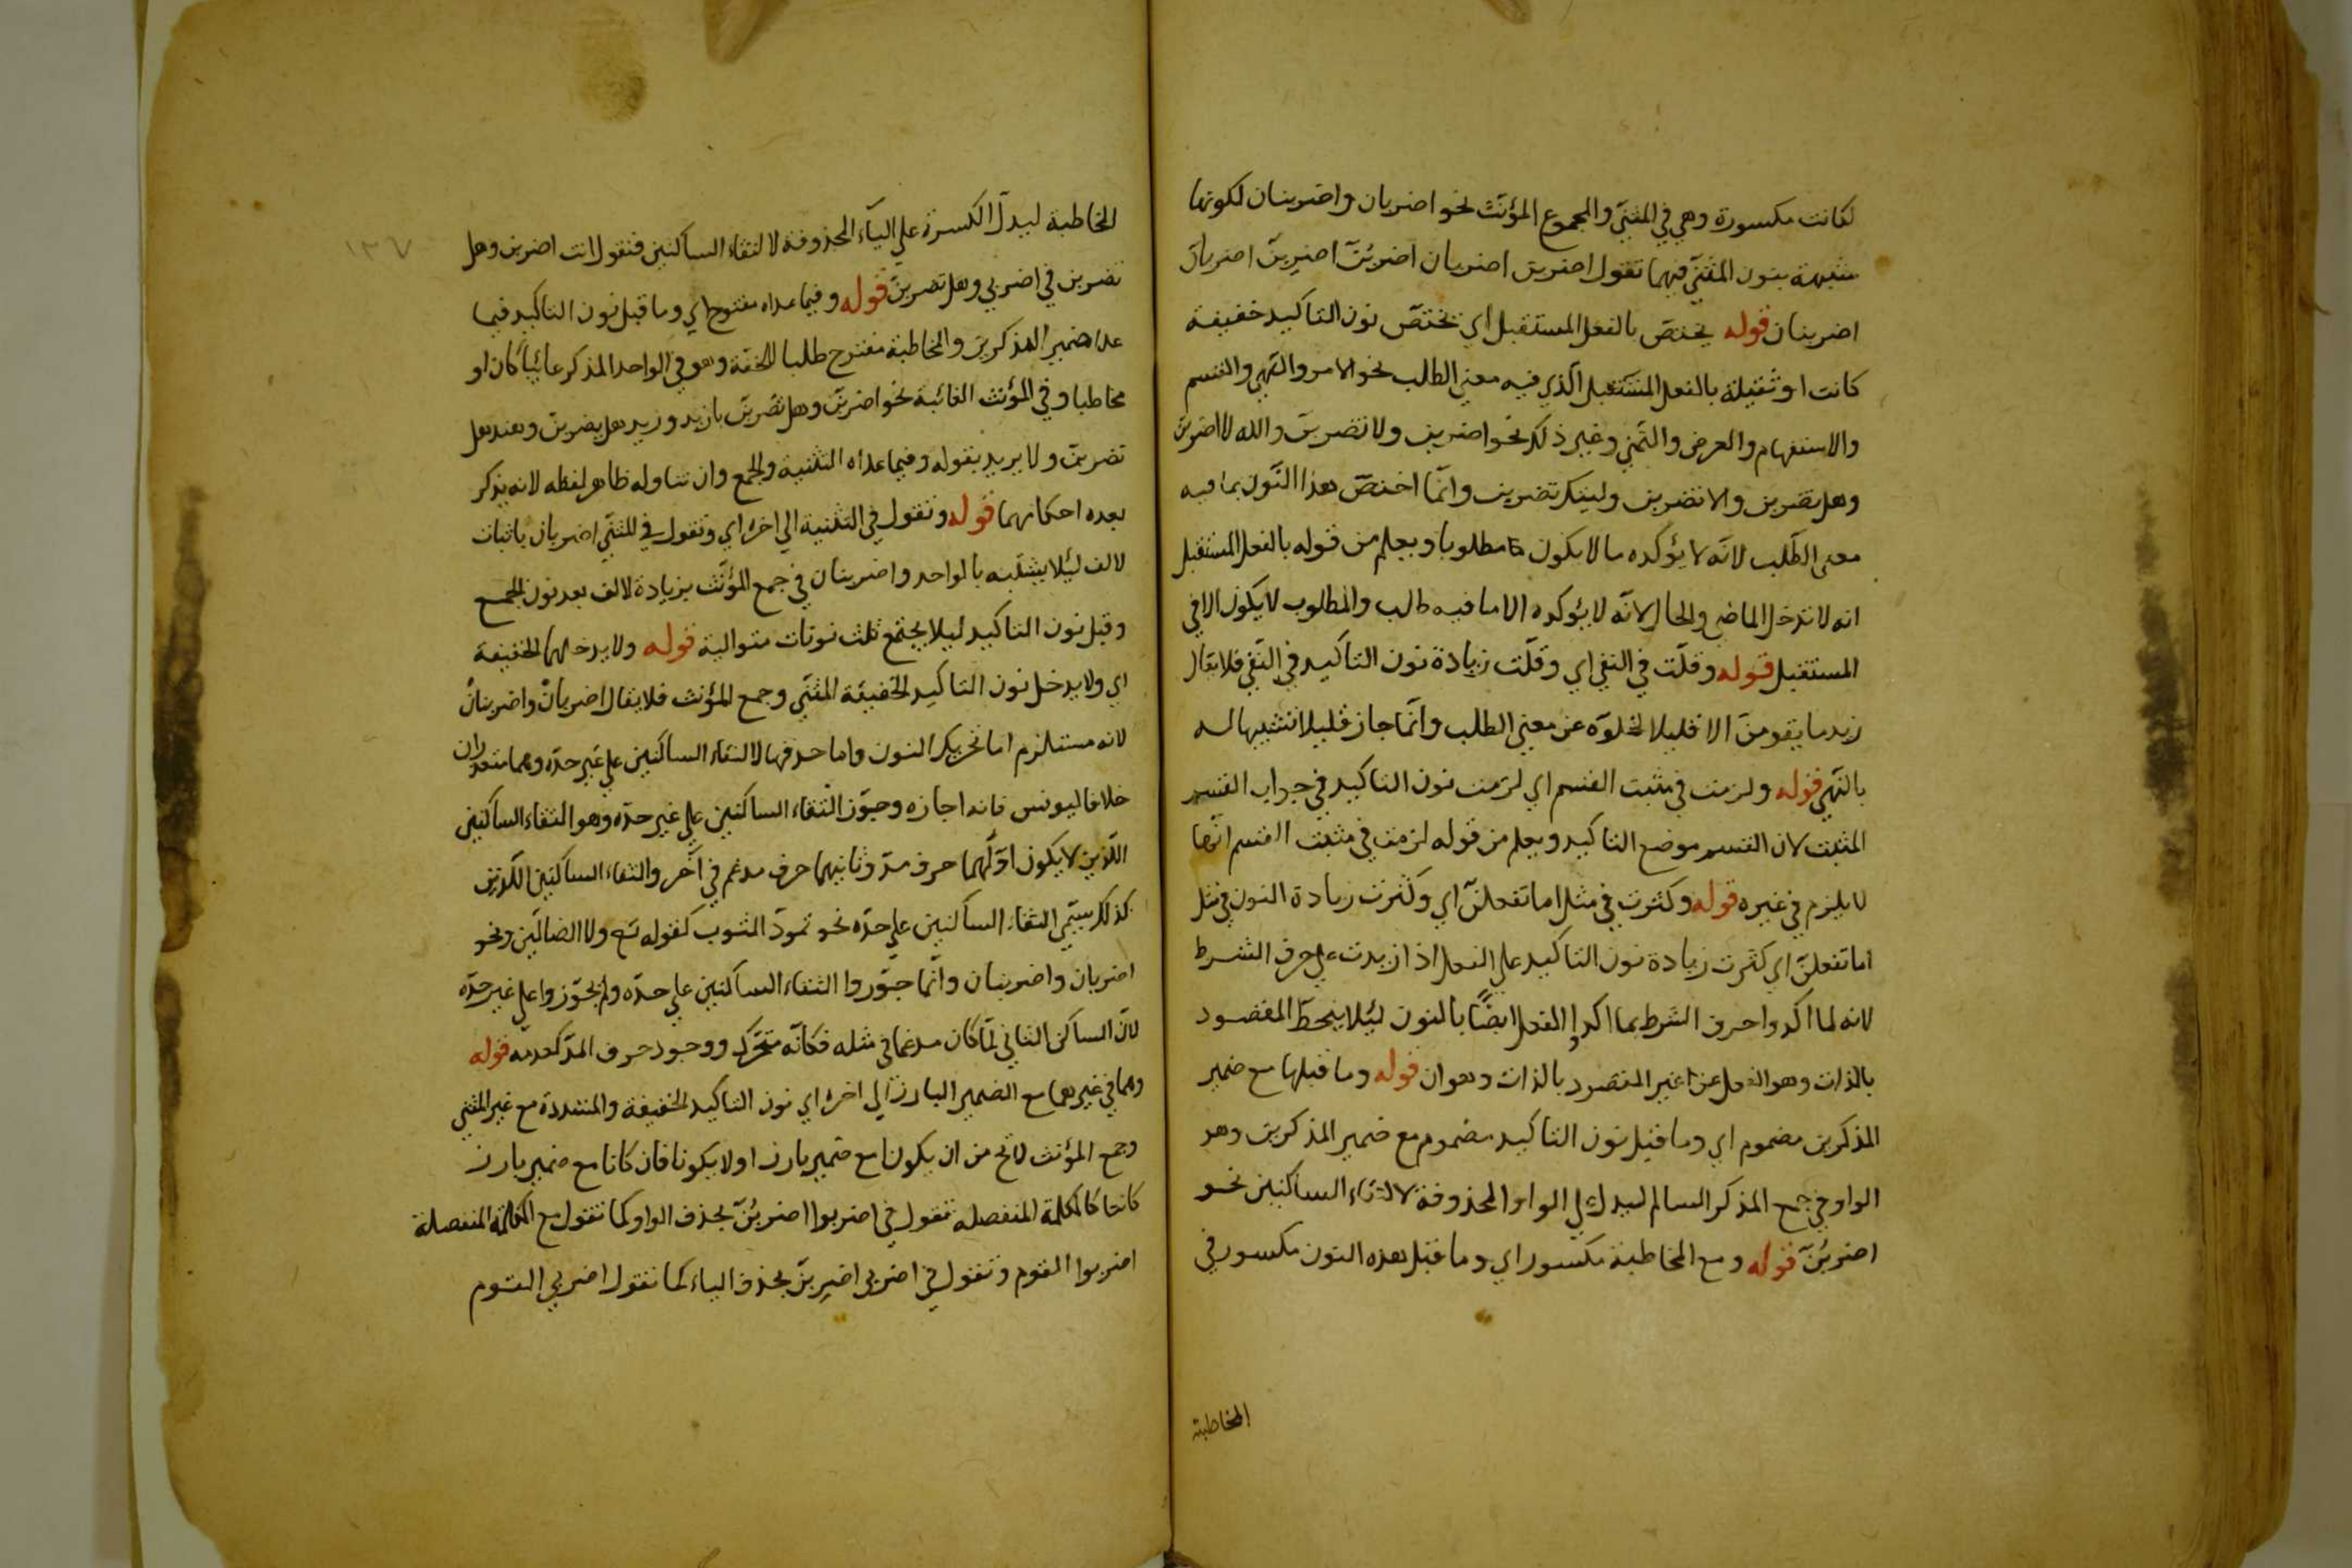 لكانت مكسورة وهي في المثنى والمجموع المؤنث نحو اضربان واضربنان لكونها
مشبهة بنون المثنى فيهما تقول اضربن اضربان اضربُنّ اضربِنّ اضربان
اضربنان قوله يختص بالفعل المستقبل اي تختص نون التاكيد خفيفة
كانت او ثقيلة بالفعل المستقبل الذي فيه معنى الطلب نحو الامر والنهي والقسم
والاستفهام والعرض والتمني وغير ذلك نحو اضربن ولا تضربن والله لاضربن
وهل تضربن والا تضربن وليتك تضربن وانما اختص هذا النون بما فيه
معنى الطلب لانه لا يؤكده ما لا يكون مطلوبا ويعلم من قوله بالفعل المستقبل
انه لا تدخل الماضي والحال لانه لا يؤكده الا ما فيه طلب والمطلوب لا يكون الا في
المستقبل قوله وقلّت في النفي اي وقلّت زيادة نون التاكيد في النفي فلا يقال
زيد ما يقومنّ الا قليلا لخلوّه عن معنى الطلب وانما جاز قليلا تشبيها له
بالنهي قوله ولزمت في مثبت القسم اي لزمت نون التاكيد في جواب القسم
المثبت لان القسم موضع التاكيد ويعلم من قوله لزمت في مثبت القسم انها
لا يلزم في غيره قوله وكثرت في مثل اما تفعلنّ اي وكثرت زيادة النون في مثل
اما تفعلنّ اي كثرت زيادة نون التاكيد على الفعل اذا زيدت على حرف الشرط
لانه لما اكدوا حرف الشرط بما اكدوا الفعل ايضًا بالنون لئلا ينحطّ المقصود
بالذات وهو الفعل عن غير المقصود بالذات وهو ان قوله وما قبلها مع ضمير
المذكرين مضموم اي وما قبل نون التاكيد مضموم مع ضمير المذكرين وهو
الواو في جمع المذكر السالم ليدل على الواو المحذوفة لالتقاء الساكنين نحو
اضربُنّ قوله ومع المخاطبة مكسور اي وما قبل هذه النون مكسور في
المخاطبة
١٣٧
المخاطبة ليدل الكسرة على الياء المحذوفة لالتقاء الساكنين فتقول انت اضربن وهل
تضربن في اضربي وهل تضربين قوله وفيما عداه مفتوح اي وما قبل نون التاكيد فيما
عدا ضمير المذكرين والمخاطبة مفتوح طلبا للخفة وهو في الواحد المذكر غائبًا كان او
مخاطبا وفي المؤنث الغائبة نحو اضربنّ وهل تضربنّ يا زيد وزيد هل يضربنّ وهند هل
تضربنّ ولا يريد بقوله وفيما عداه التثنية والجمع وان تناوله ظاهر لفظه لانه يذكر
بعده احكامهما قوله وتقول في التثنية الى اخره اي وتقول في المثنى اضربان باثبات
الالف لئلا يشتبه بالواحد واضربنان في جمع المؤنث بزيادة الالف بعد نون الجمع
وقبل نون التاكيد ليلا يجتمع ثلث نونات متوالية قوله ولا يدخلهما الخفيفة
اي ولا يدخل نون التاكيد الخفيفة المثنى وجمع المؤنث فلا يقال اضربانْ واضربنانْ
لانه مستلزم اما تحريك النون واما حذفها لالتقاء الساكنين على غير حدّه وهما متعذران
خلافا ليونس فانه اجازه وجوّز التقاء الساكنين على غير حدّه وهو التقاء الساكنين
اللذين لا يكون اوّلهما حرف مدّ وثانيهما حرف مدغم في آخر والتقاء الساكنين اللذين
كذلك يسمّى التقاء الساكنين على حدّه نحو تمودّ الثوب كقوله تع ولا الضالّين ونحو
اضربان واضربنان وانّما جوّزوا التقاء الساكنين على حدّه ولم يجوّزوا على غير حدّه
لانّ الساكن الثاني لمّا كان مدغما في مثله فكانّه متحرّك ووجود حرف المدّ كعدمه قوله
وهما في غيرهما مع الضمير البارز الى اخره اي نون التاكيد الخفيفة والمشددة مع غير المثنى
وجمع المؤنث لاتخ من ان يكونا مع ضمير بارز اولا يكونا فان كانا مع ضمير بارز
كانتا كالكلمة المنفصله تقول في اضربوا اضربُنّ بحذف الواو كما تقول مع الكلمة المنفصلة
اضربوا القوم وتقول في اضربي اضربِنّ بحذف الياء كما تقول اضربي القوم